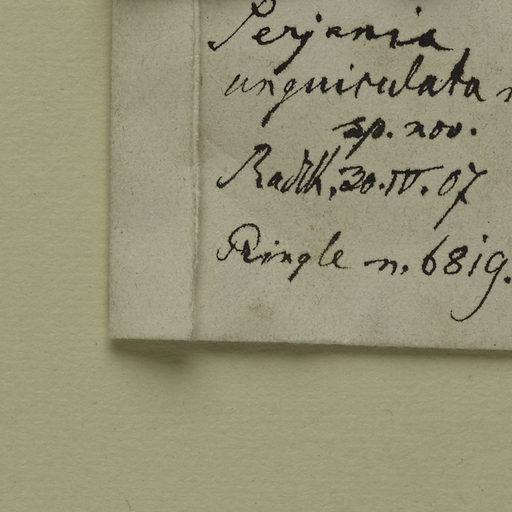 Serjania
unguiculata n
sp. nov.
Radlk, 30.IV.07
Pringle n. 6819.